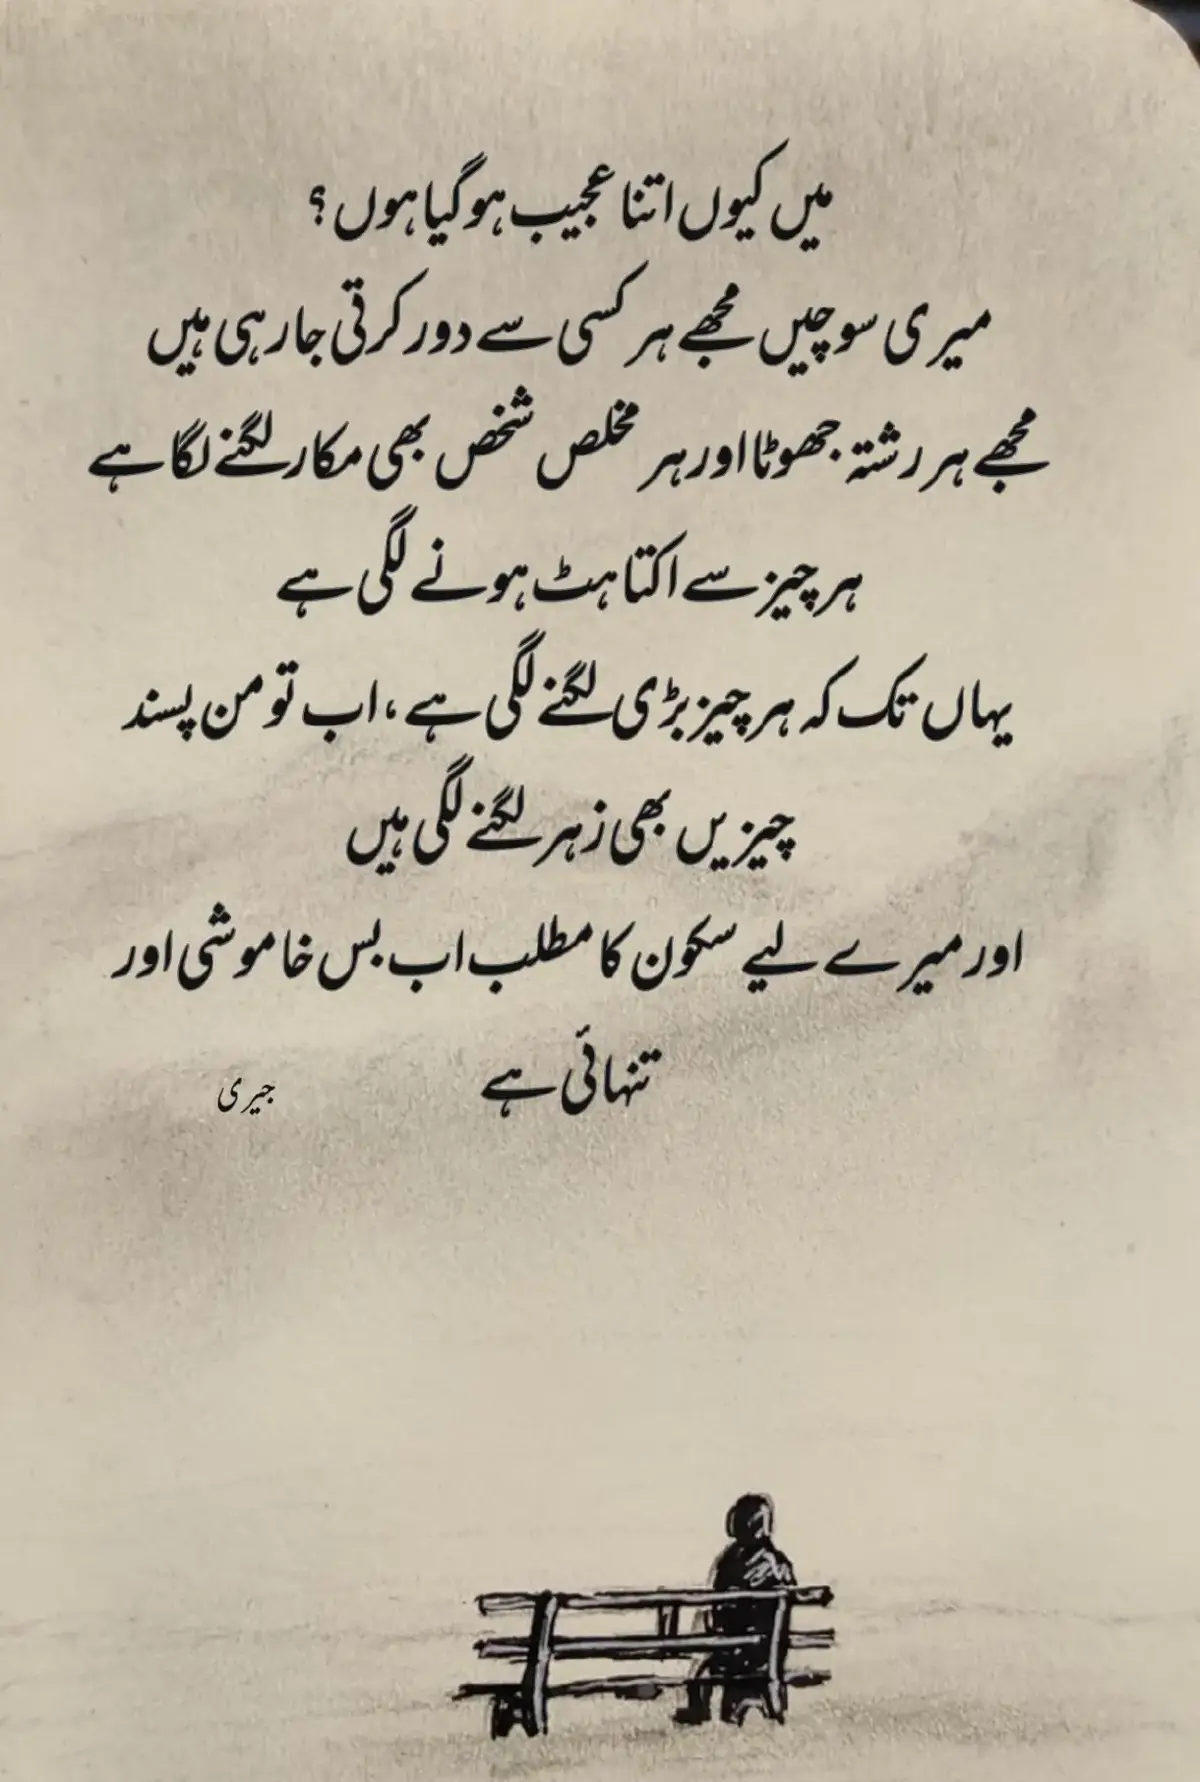 میں کیوں اتنا عجیب ہو گیا ہوں؟
میری سوچیں مجھے ہر کسی سے دور کرتی جا رہی ہیں
مجھے ہر رشتہ جھوٹا اور ہر مخلص شخص بھی مکار لگنے لگا ہے
ہر چیز سے اکتاہٹ ہونے لگی ہے
یہاں تک کہ ہر چیز بڑی لگنے لگی ہے، اب تو من پسند
چیزیں بھی زہر لگنے لگی ہیں
اور میرے لیے سکون کا مطلب اب بس خاموشی اور
تنہائی ہے
جیری